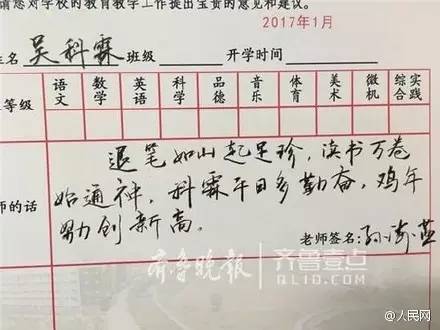 请您对学校的教育教学工作提出宝贵的意见和建议。
2017年1月
生名 吴科霖 班级 开学时间
语文 数学 英语 科学 品德 音乐 体育 美术 微机 综合实践
等级
退笔如山起足珍,读书万卷
始通神,科霖平日多勤奋,鸡年
勠创新高。
师的话
老师签名:
齐鲁晚报 齐鲁壹点
QL1D.COM
@人民网